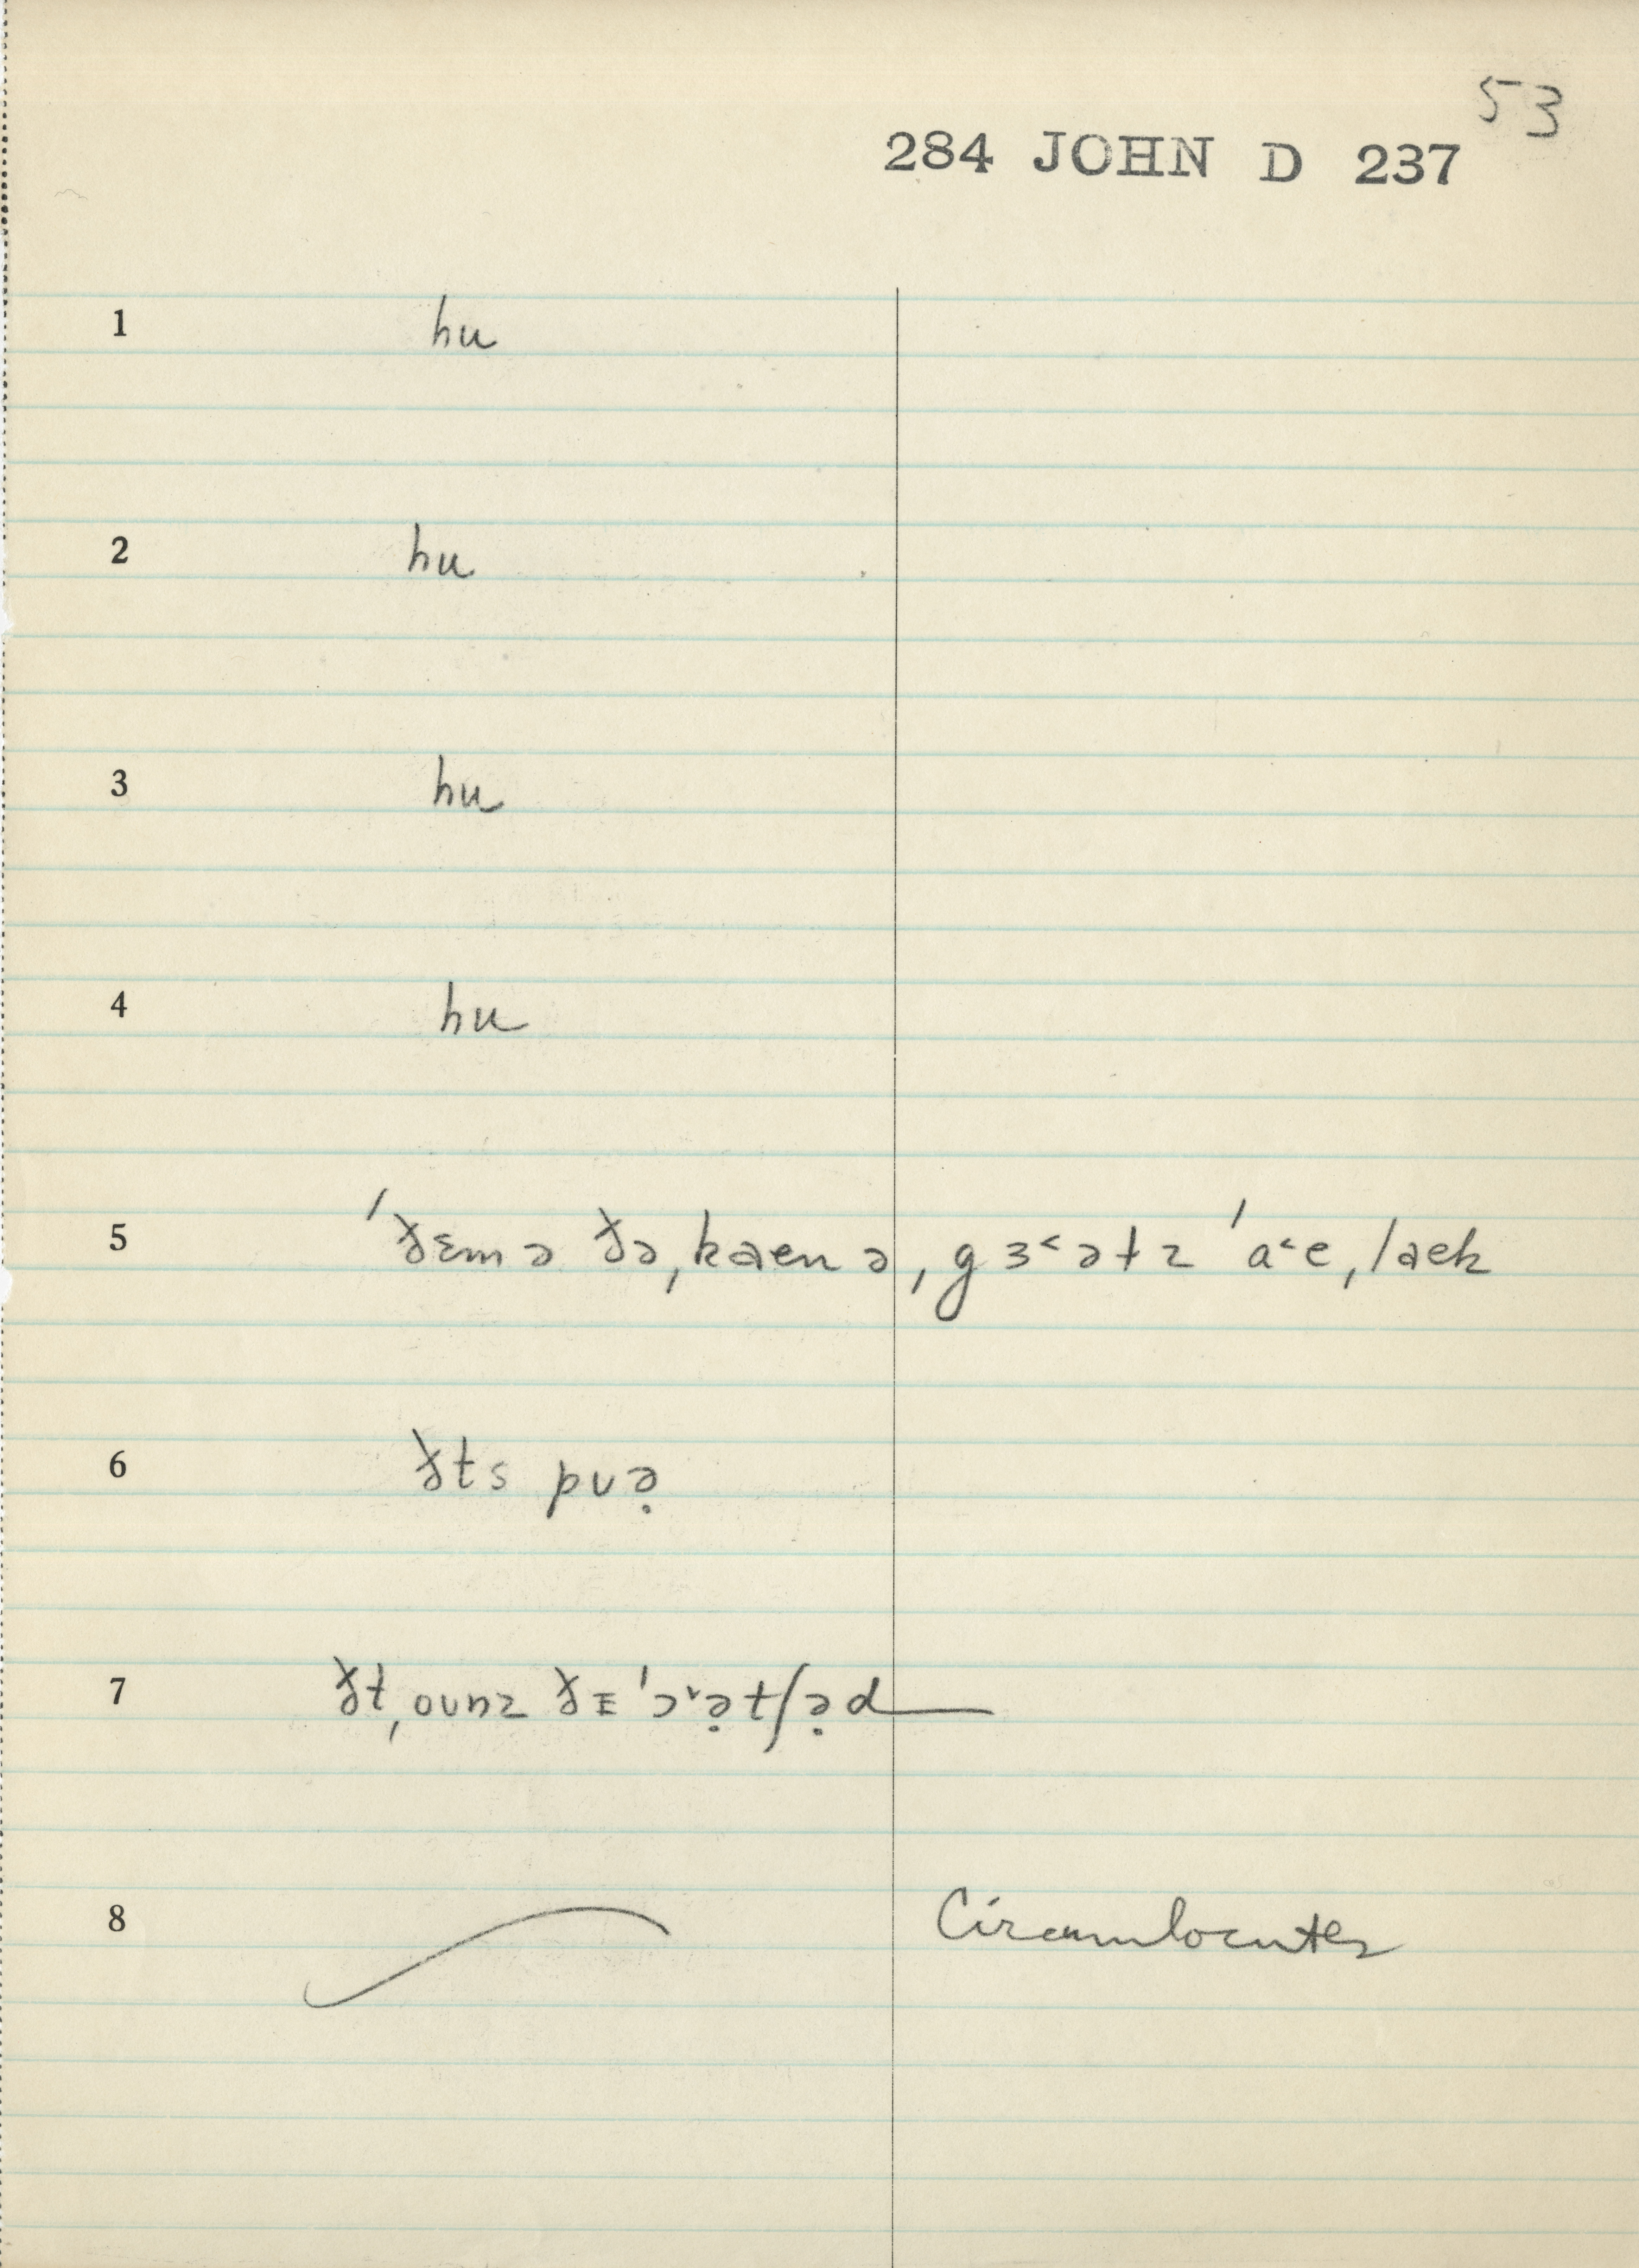 53
284 JOHN D 237
1 hu
2 hu
3 hu
4 hu
5 ˈðɛm ə ðə ˌkaen ə ˌgɜ˂ətz ˈa˂e ˌlaek
6 ðts pʋə̣
7 ðt ˌoʋnz ðᴇ ˈɔ˅ə̣tʃə̣d
8 Circumlocutes